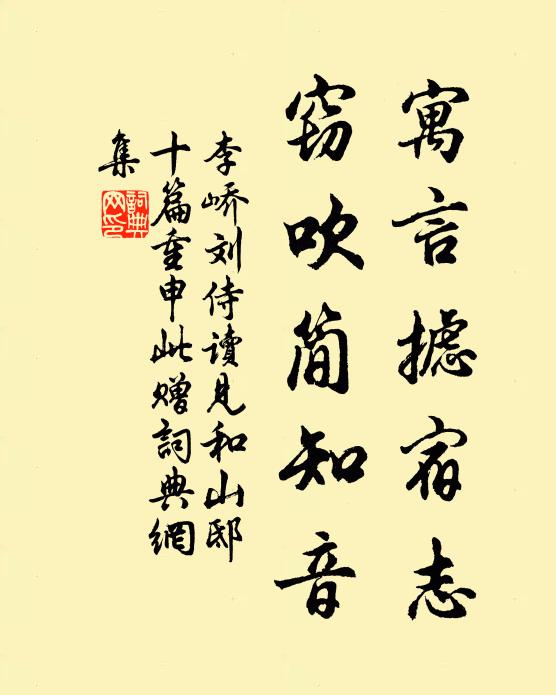 寓言摅宿志
窃吹简知音
李峤刘侍讀見和山邸
十篇重申此赠詞典網
集
詞典
网印